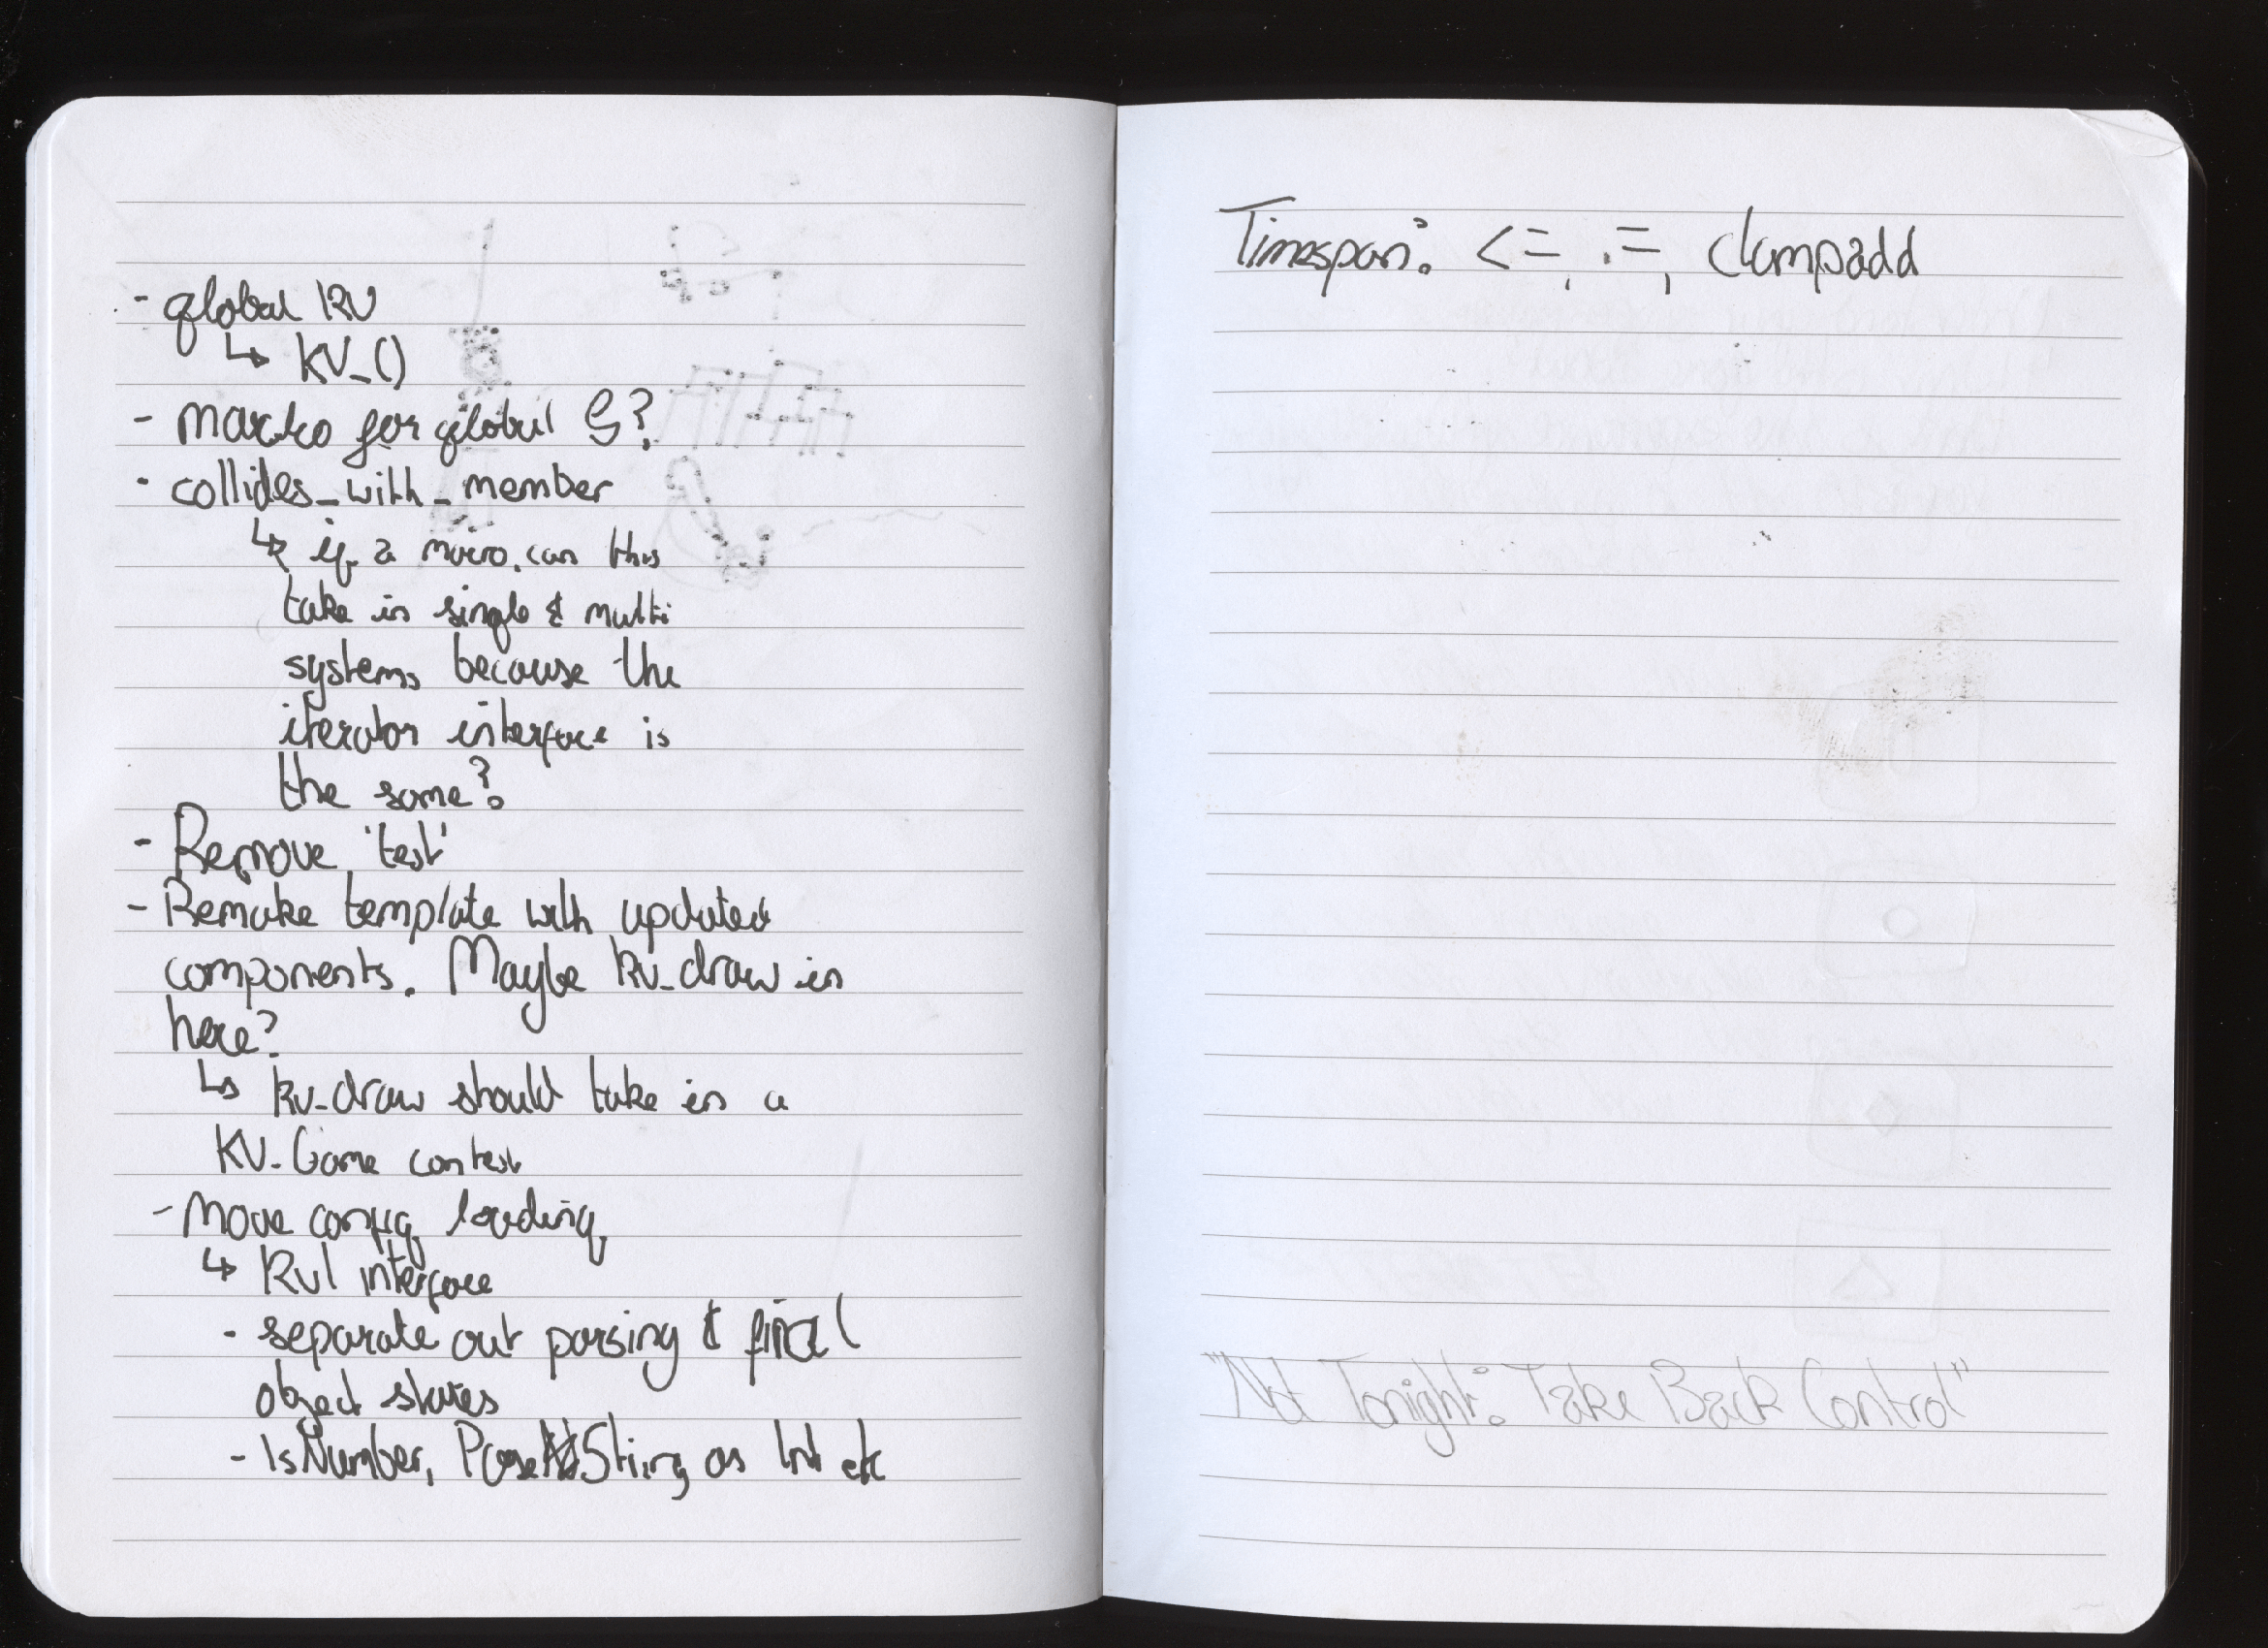 - global KV
↳ KV_()
- macro for global S?
- collides_with_member
↳ if a macro, can this
take in single & multi
systems because the
iterator interface is
the same?
- Remove 'test'
- Remake template with updated
components. Maybe kv_draw in
here?
↳ kv_draw should take in a
KV_Game context
- Move config loading
↳ KVI interface
- separate out parsing & final
object states
- IsNumber, ParseString as Int etc
Timespan: <=, .=, clampadd
"Not Tonight: Take Back Control"